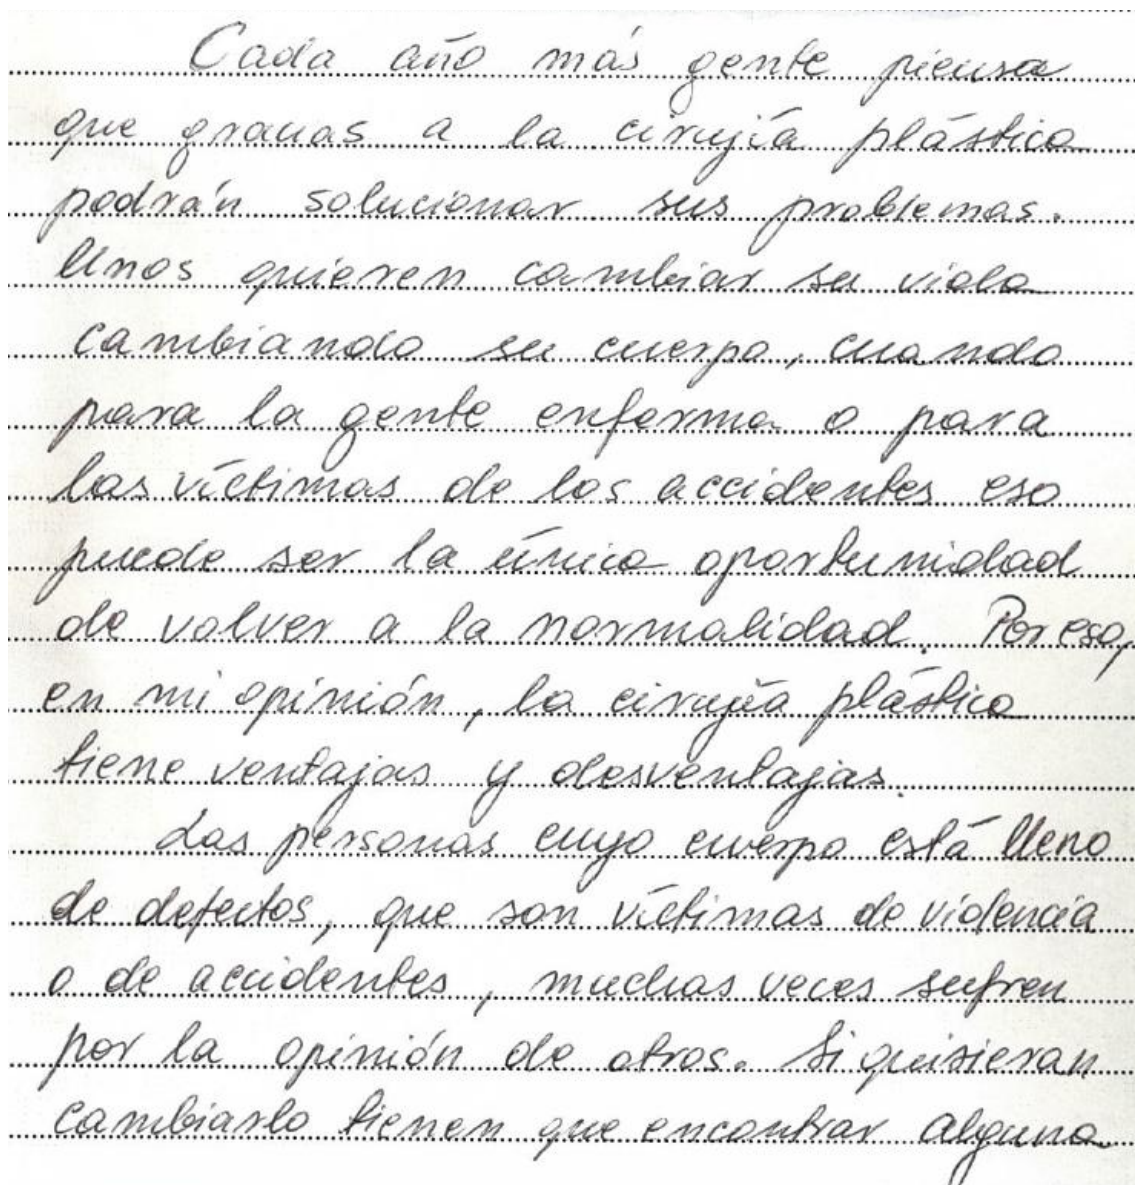 Cada año más gente piensa
que gracias a la cirujía plástica
podrán solucionar sus problemas.
Unos quieren cambiar su vida
cambiando su cuerpo, cuando
para la gente enferma o para
las víctimas de los accidentes eso
puede ser la única oportunidad
de volver a la normalidad. Por eso,
en mi opinión, la cirujía plástica
tiene ventajas y desventajas.
Las personas cuyo cuerpo está lleno
de defectos, que son víctimas de violencia
o de accidentes, muchas veces sufren
por la opinión de otros. Si quisieran
cambiarlo tienen que encontrar alguna